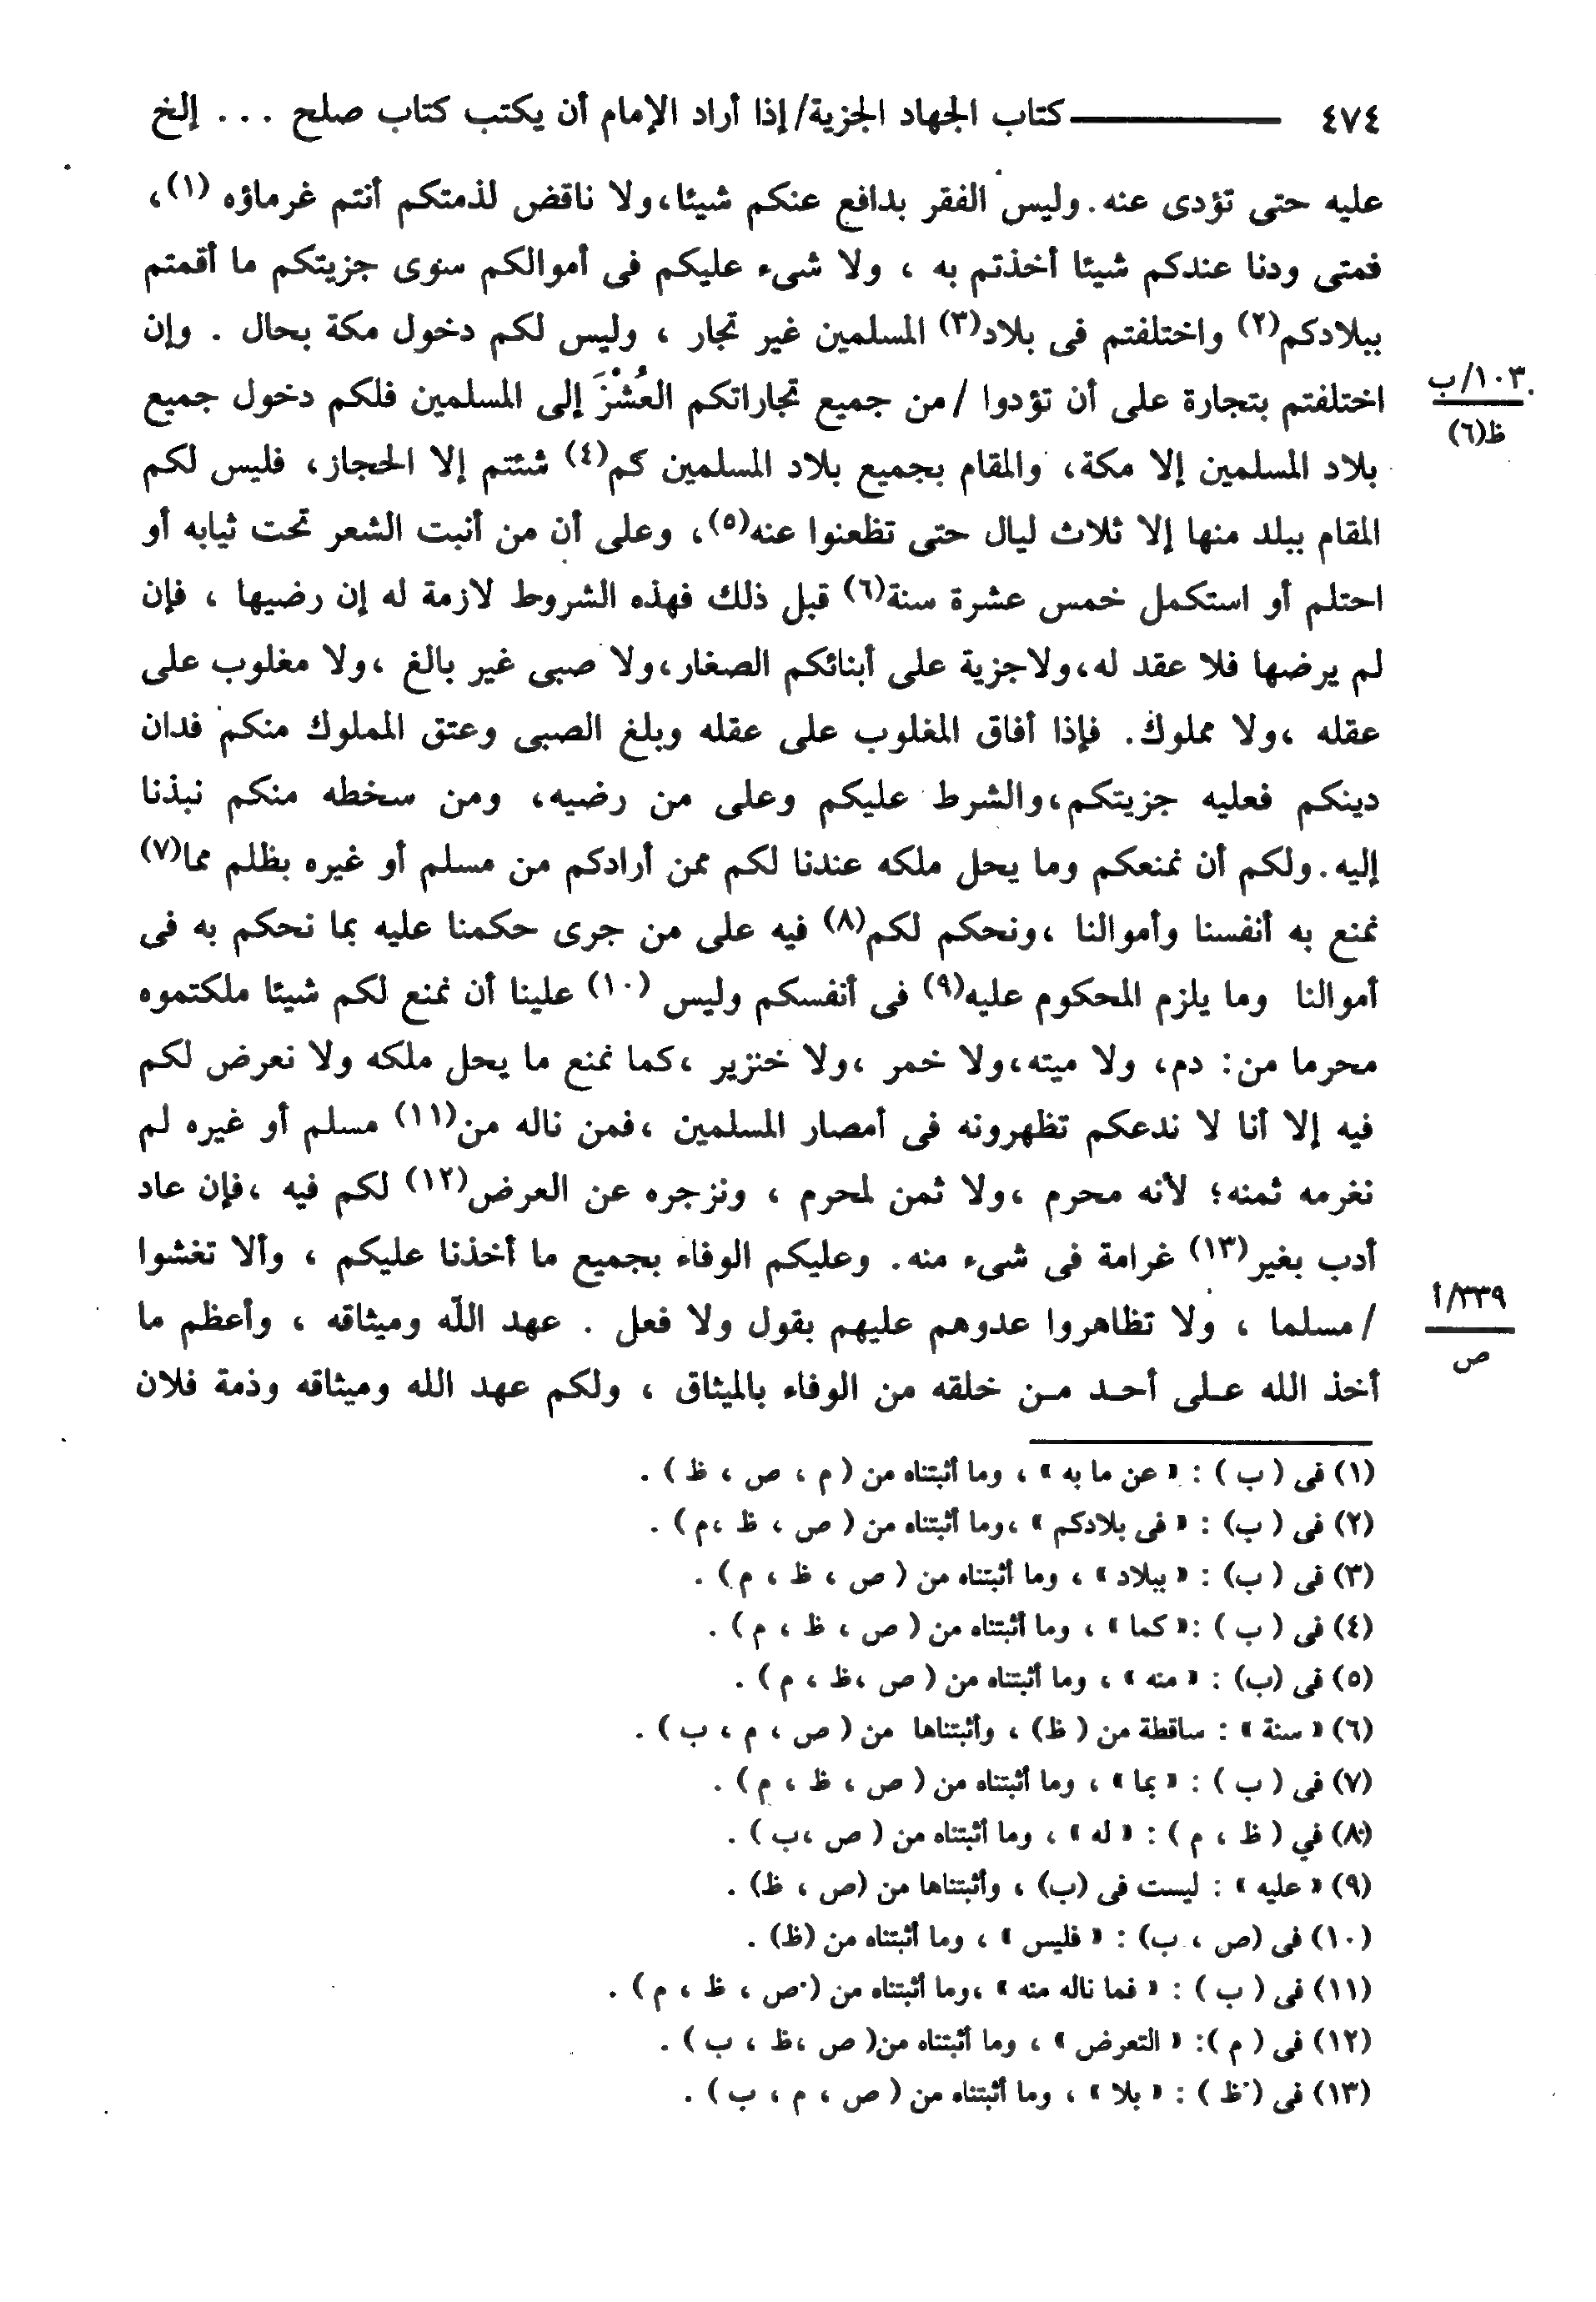 ٤٧٤ ــــــ كتاب الجهاد الجزية/ إذا أراد الإمام أن يكتب كتاب صلح . . . إلخ
عليه حتى تؤدى عنه. وليس الفقر بدافع عنكم شيئا، ولا ناقض لذمتكم أنتم غرماؤه (١)،
فمتى ودنا عندكم شيئا أخذتم به ، ولا شىء عليكم فى أموالكم سنوى جزيتكم ما أقمتم
ببلادكم(٢) واختلفتم فى بلاد(٣) المسلمين غير تجار ، وليس لكم دخول مكة بحال . وإن
اختلفتم بتجارة على أن تؤدوا / من جميع تجاراتكم العُشْرَ إلى المسلمين فلكم دخول جميع
١٠٣/ب
ظ(٦)
بلاد المسلمين إلا مكة، والمقام بجميع بلاد المسلمين كم(٤) شئتم إلا الحجاز، فليس لكم
المقام ببلد منها إلا ثلاث ليال حتى تظعنوا عنه(٥)، وعلى أن من أنبت الشعر تحت ثيابه أو
احتلم أو استكمل خمس عشرة سنة(٦) قبل ذلك فهذه الشروط لازمة له إن رضيها ، فإن
لم يرضها فلا عقد له، ولاجزية على أبنائكم الصغار، ولا صبى غير بالغ ، ولا مغلوب على
عقله ، ولا مملوك. فإذا أفاق المغلوب على عقله وبلغ الصبى وعتق المملوك منكم فدان
دينكم فعليه جزيتكم، والشرط عليكم وعلى من رضيه، ومن سخطه منكم نبذنا
إليه. ولكم أن نمنعكم وما يحل ملكه عندنا لكم ممن أرادكم من مسلم أو غيره بظلم مما(٧)
نمنع به أنفسنا وأموالنا ، ونحكم لكم(٨) فيه على من جرى حكمنا عليه بما نحكم به فى
أموالنا وما يلزم المحكوم عليه(٩) فى أنفسكم وليس (١٠) علينا أن نمنع لكم شيئا ملكتموه
محرما من: دم، ولا ميته، ولا خمر ، ولا خنزير ، كما نمنع ما يحل ملكه ولا نعرض لكم
فيه إلا أنا لا ندعكم تظهرونه فى أمصار المسلمين ، فمن ناله من(١١) مسلم أو غيره لم
نغرمه ثمنه؛ لأنه محرم ، ولا ثمن لمحرم ، ونزجره عن العرض(١٢) لكم فيه ، فإن عاد
أدب بغير(١٣) غرامة فى شىء منه. وعليكم الوفاء بجميع ما أخذنا عليكم ، وألا تغشوا
/ مسلما ، ولا تظاهروا عدوهم عليهم بقول ولا فعل . عهد اللّه وميثاقه ، وأعظم ما
٣٣٩/أ
ص
أخذ الله عـلى أحـد مـن خلقه من الوفاء بالميثاق ، ولكم عهد الله وميثاقه وذمة فلان
(١) فى ( ب ) : « عن ما به » ، وما أثبتناه من ( م ، ص ، ظ ) .
(٢) فى ( ب) : « فى بلادكم » ، وما أثبتناه من ( ص ، ظ ، م ) .
(٣) فى ( ب) : « ببلاد » ، وما أثبتناه من ( ص ، ظ ، م ) .
(٤) فى ( ب ) : « كما » ، وما أثبتناه من ( ص ، ظ ، م ) .
(٥) فى (ب) : « منه » ، وما أثبتناه من ( ص ، ظ ، م ) .
(٦) « سنة » : ساقطة من ( ظ) ، وأثبتناها من ( ص ، م ، ب ) .
(٧) فى ( ب ) : « بما » ، وما أثبتناه من ( ص ، ظ ، م ) .
(٨) في ( ظ ، م ) : « له » ، وما أثبتناه من ( ص ، ب ) .
(٩) « عليه » : ليست فى (ب) ، وأثبتناها من (ص ، ظ) .
(١٠) فى (ص ، ب) : « فليس » ، وما أثبتناه من (ظ) .
(١١) فى ( ب ) : « فما ناله منه » ، وما أثبتناه من ( ص ، ظ ، م ) .
(١٢) فى ( م ): « التعرض » ، وما أثبتناه من( ص ، ظ ، ب ) .
(١٣) فى ( ظ ) : « بلا » ، وما أثبتناه من ( ص ، م ، ب ) .